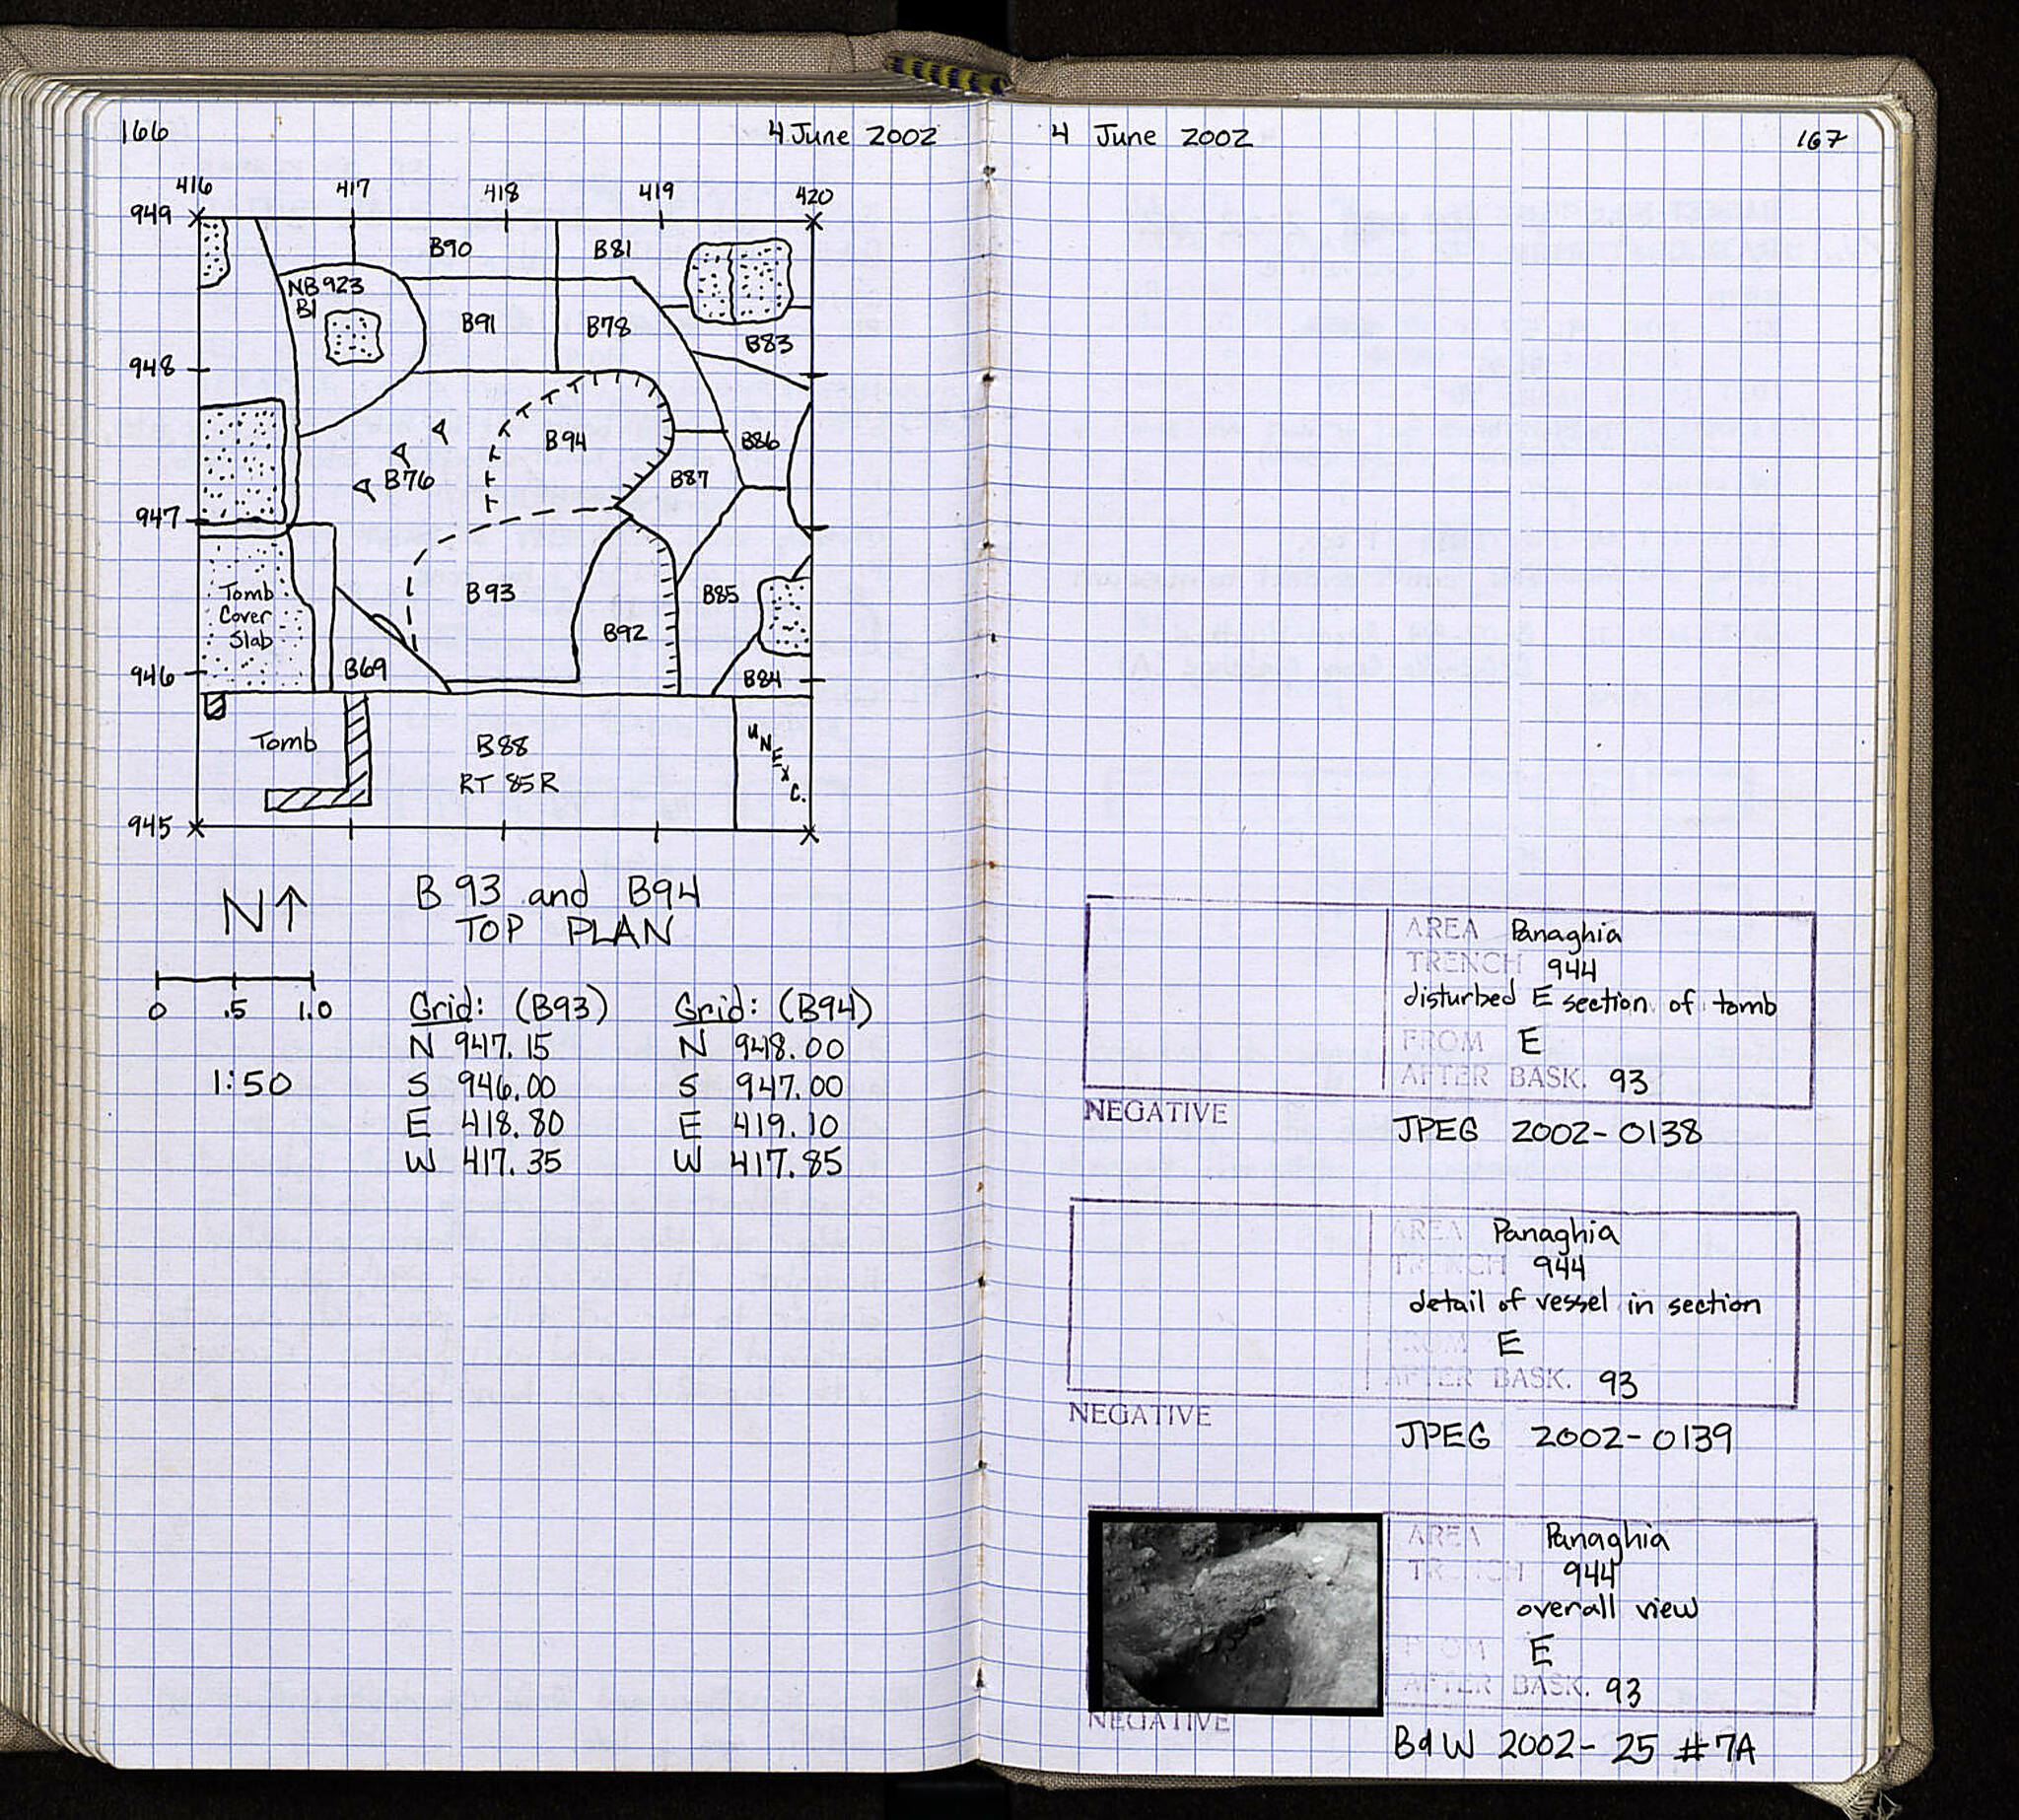 166
4 June 2002
416 417 418 419 420
949
B90
B81
NB 923
B1
B91
B78
B83
948
B94
B86
B76
B87
947
Tomb
Cover
Slab
B93
B85
B92
946
B69
B84
Tomb
B88
RT 85R
UNEXC.
945
N↑
B 93 and B94
TOP PLAN
0 .5 1.0
1:50
Grid: (B93)
N 947.15
S 946.00
E 418.80
W 417.35
Grid: (B94)
N 948.00
S 947.00
E 419.10
W 417.85
4 June 2002
167
AREA Panaghia
TRENCH 944
disturbed E section of tomb
FROM E
AFTER BASK. 93
NEGATIVE
JPEG 2002-0138
AREA Panaghia
TRENCH 944
detail of vessel in section
FROM E
AFTER BASK. 93
NEGATIVE
JPEG 2002-0139
AREA Panaghia
TRENCH 944
overall view
FROM E
AFTER BASK. 93
NEGATIVE
B&W 2002-25 #7A